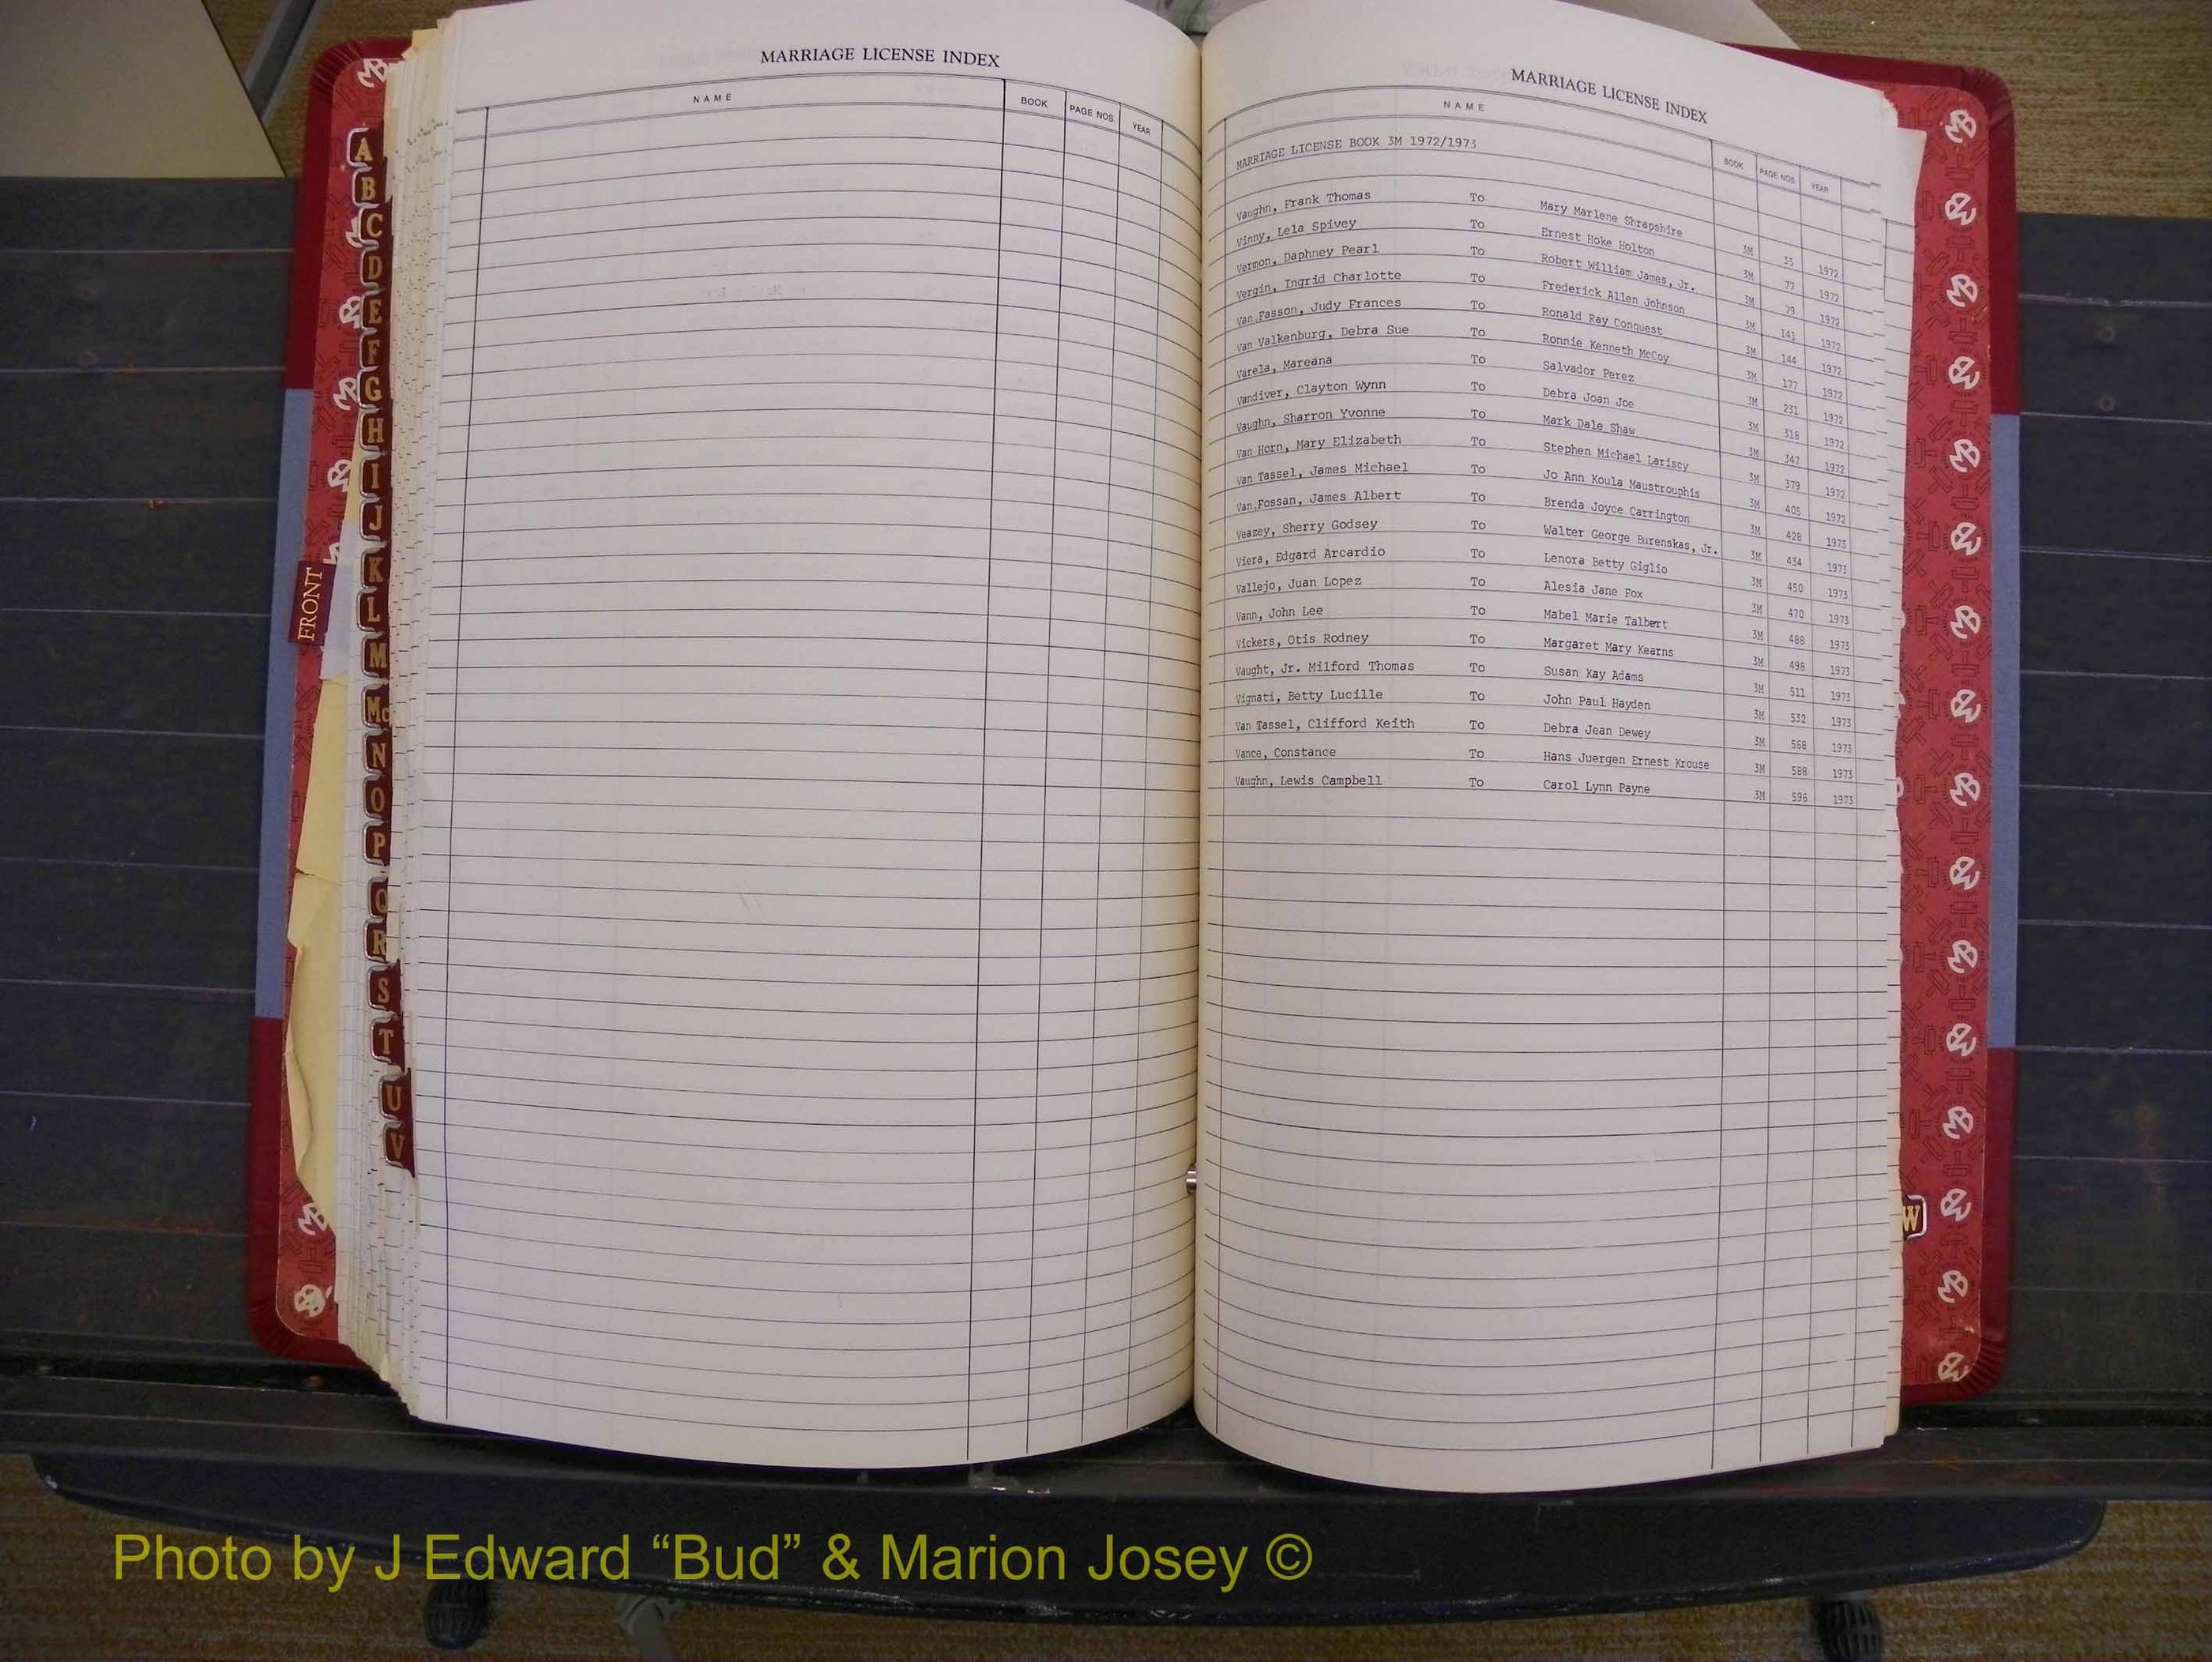 MARRIAGE LICENSE INDEX
NAME BOOK PAGE NOS. YEAR
A
B
C
D
E
F
G
H
I
J
K
L
M
Mc
N
O
P
Q
R
S
T
U
V
FRONT
MARRIAGE LICENSE INDEX
NAME BOOK PAGE NOS. YEAR
MARRIAGE LICENSE BOOK 3M 1972/1973
Vaughn, Frank Thomas To Mary Marlene Shrapshire 3M 35 1972
Vinny, Lela Spivey To Ernest Hoke Holton 3M 77 1972
Vermon, Daphney Pearl To Robert William James, Jr. 3M 79 1972
Vergin, Ingrid Charlotte To Frederick Allen Johnson 3M 141 1972
Van Fasson, Judy Frances To Ronald Ray Conquest 3M 144 1972
Van Valkenburg, Debra Sue To Ronnie Kenneth McCoy 3M 177 1972
Varela, Mareana To Salvador Perez 3M 231 1972
Vandiver, Clayton Wynn To Debra Joan Joe 3M 318 1972
Vaughn, Sharron Yvonne To Mark Dale Shaw 3M 347 1972
Van Horn, Mary Elizabeth To Stephen Michael Lariscy 3M 379 1972
Van Tassel, James Michael To Jo Ann Koula Maustrouphis 3M 405 1972
Van Fossan, James Albert To Brenda Joyce Carrington 3M 428 1973
Veazey, Sherry Godsey To Walter George Burenskas, Jr. 3M 434 1973
Viera, Edgard Arcardio To Lenora Betty Giglio 3M 450 1973
Vallejo, Juan Lopez To Alesia Jane Fox 3M 470 1973
Vann, John Lee To Mabel Marie Talbert 3M 488 1973
Vickers, Otis Rodney To Margaret Mary Kearns 3M 498 1973
Vaught, Jr. Milford Thomas To Susan Kay Adams 3M 511 1973
Vignati, Betty Lucille To John Paul Hayden 3M 532 1973
Van Tassel, Clifford Keith To Debra Jean Dewey 3M 568 1973
Vance, Constance To Hans Juergen Ernest Krouse 3M 588 1973
Vaughn, Lewis Campbell To Carol Lynn Payne 3M 596 1973
W
Photo by J Edward “Bud” & Marion Josey ©